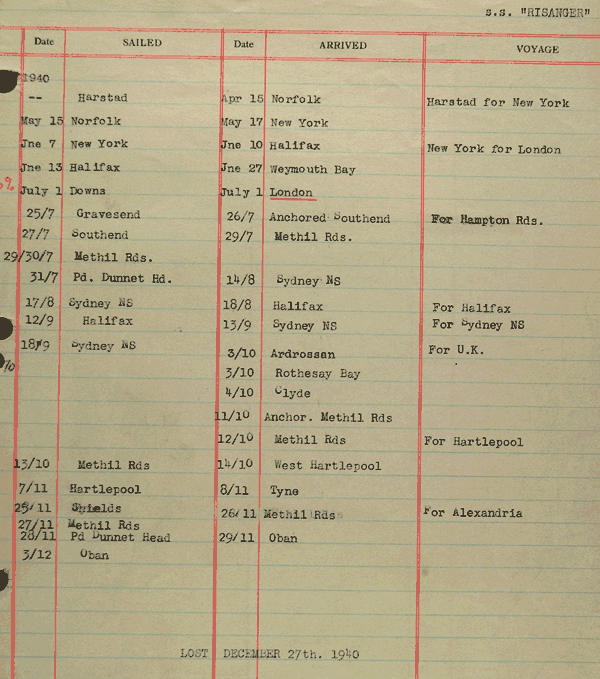 S.S. "RISANGER"
Date SAILED Date ARRIVED VOYAGE
1940
-- Harstad Apr 15 Norfolk Harstad for New York
May 15 Norfolk May 17 New York
Jne 7 New York Jne 10 Halifax New York for London
Jne 13 Halifax Jne 27 Weymouth Bay
July 1 Downs July 1 London
25/7 Gravesend 26/7 Anchored Southend For Hampton Rds.
27/7 Southend 29/7 Methil Rds.
29/30/7 Methil Rds.
31/7 Pd. Dunnet Hd. 14/8 Sydney NS
17/8 Sydney NS 18/8 Halifax For Halifax
12/9 Halifax 13/9 Sydney NS For Sydney NS
18/9 Sydney NS 3/10 Ardrossan For U.K.
3/10 Rothesay Bay
4/10 Clyde
11/10 Anchor. Methil Rds
12/10 Methil Rds For Hartlepool
13/10 Methil Rds 14/10 West Hartlepool
7/11 Hartlepool 8/11 Tyne
25/11 Shields 26/11 Methil Rds For Alexandria
27/11 Methil Rds
28/11 Pd Dunnet Head 29/11 Oban
3/12 Oban
LOST DECEMBER 27th. 1940